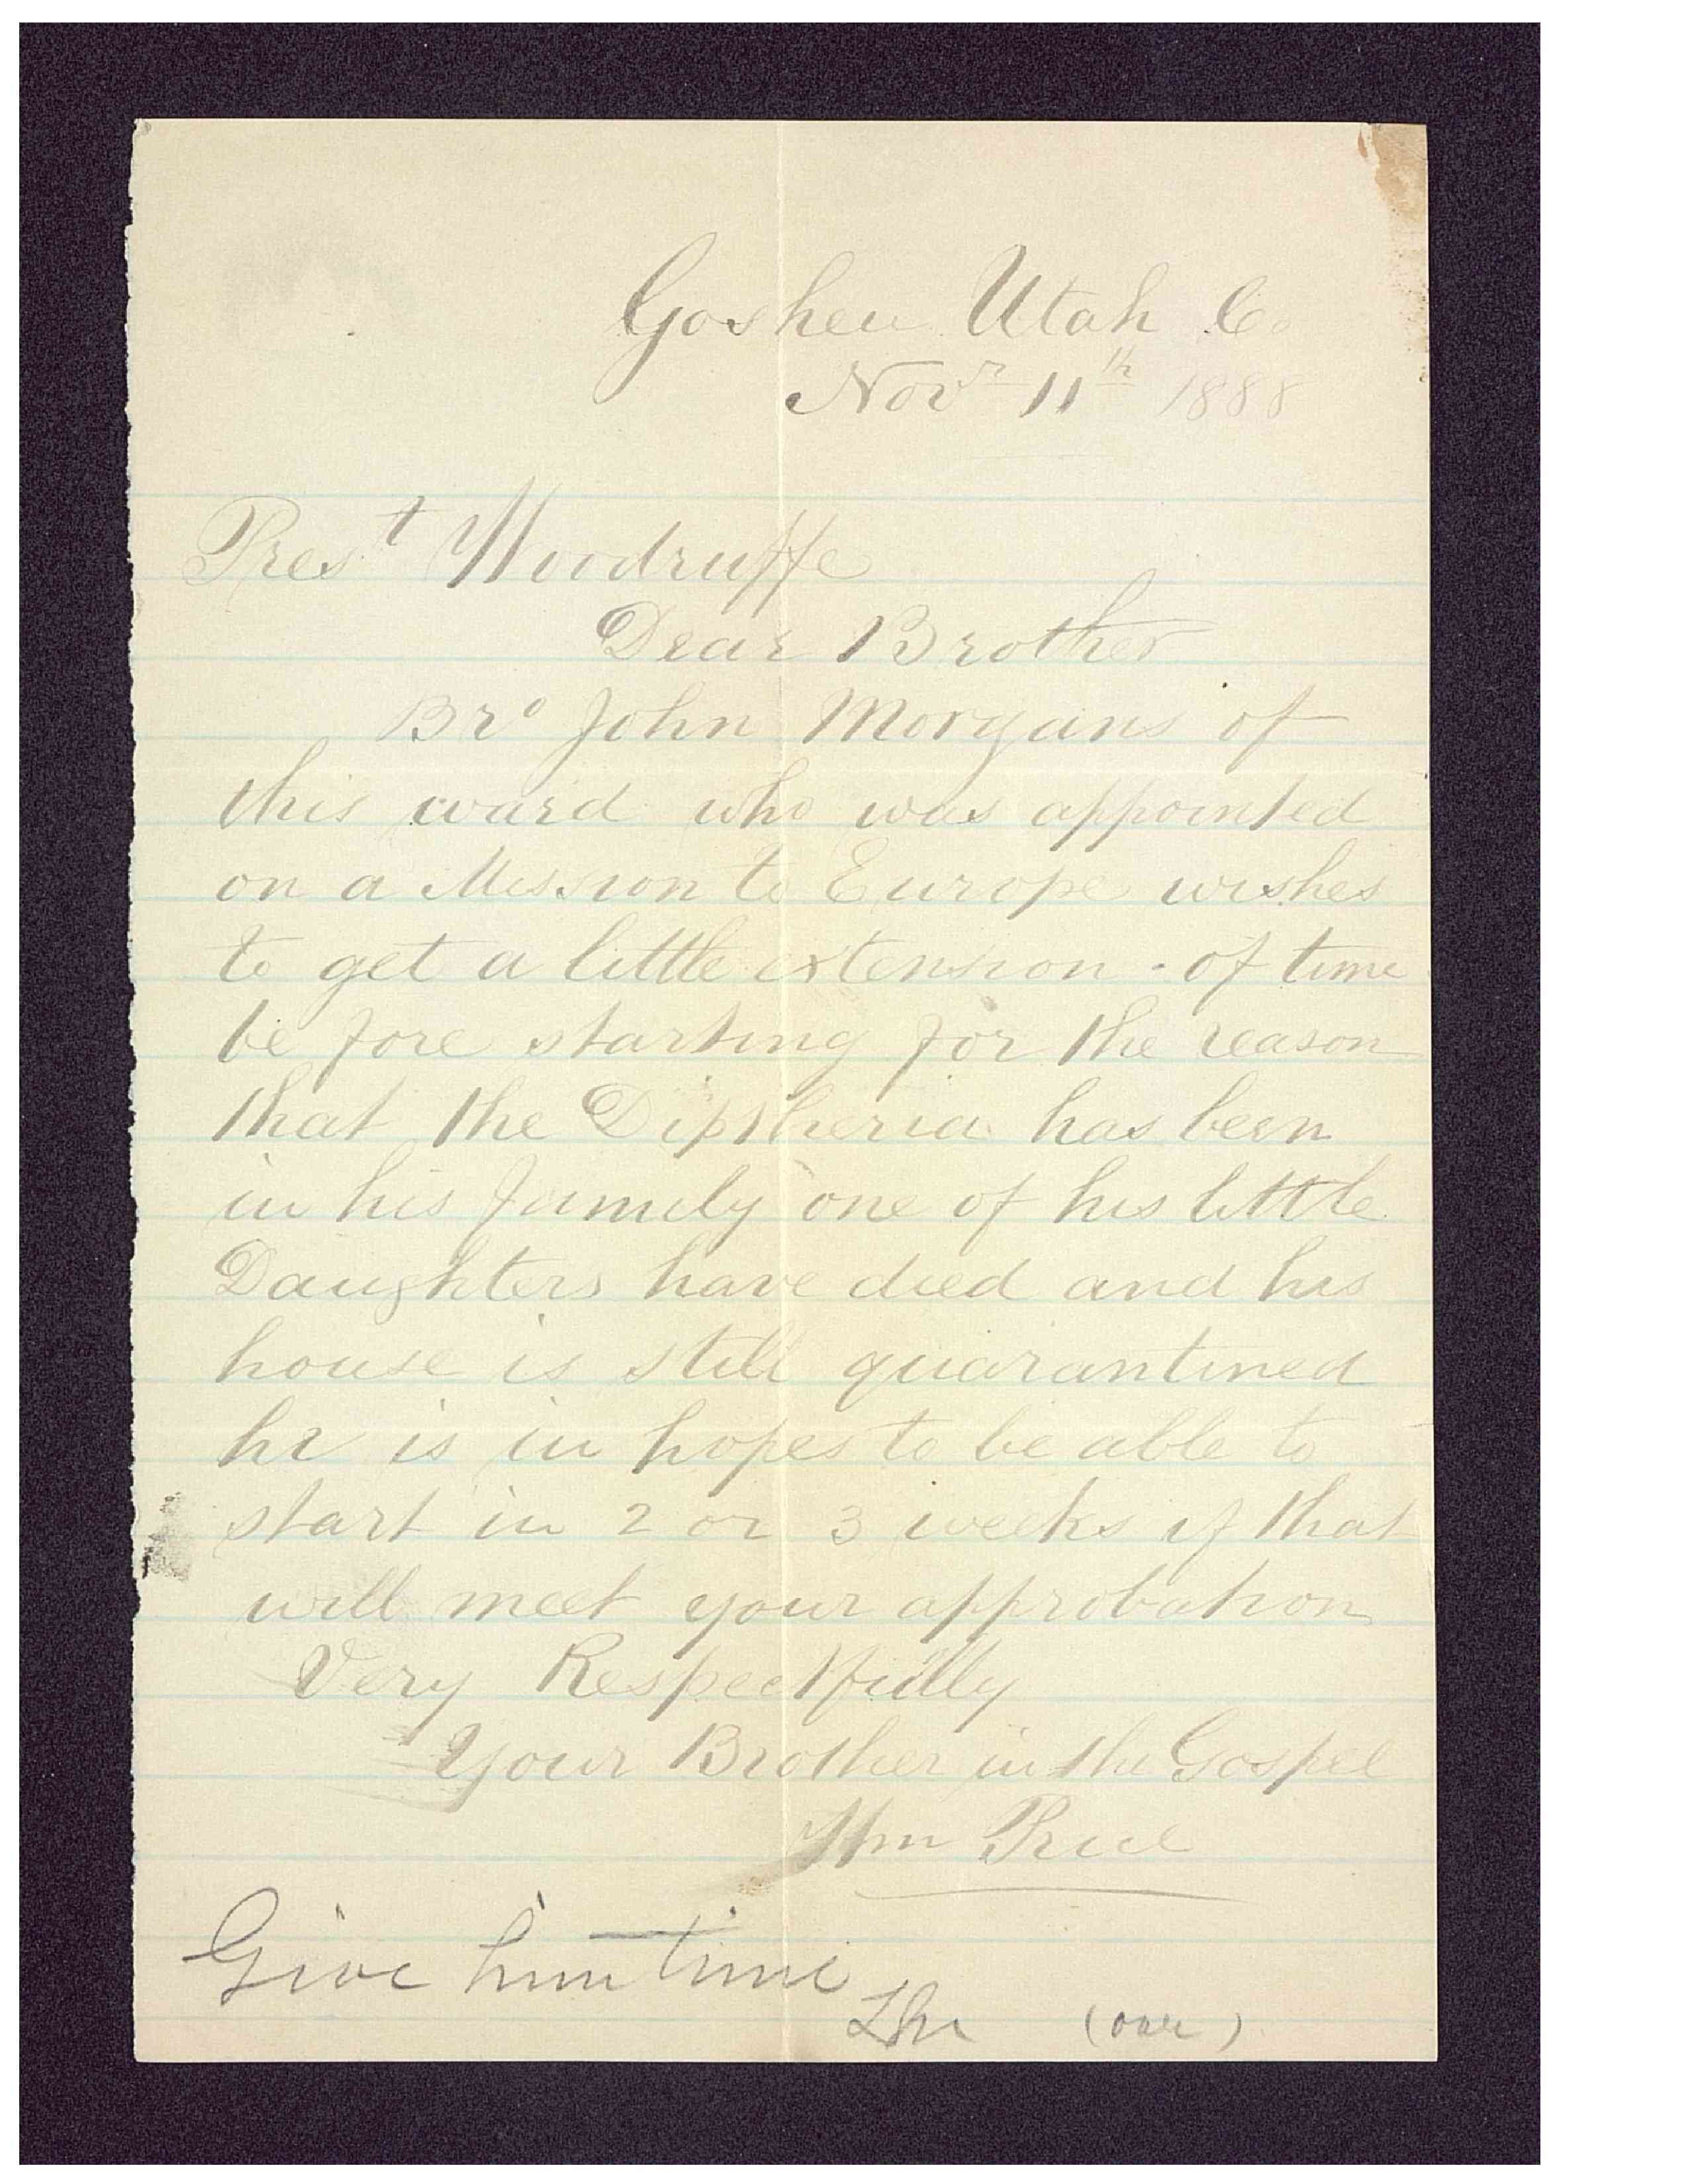 Goshen Utah Co
Novr 11th 1888
Prest Woodruffe
Dear Brother
Bro John Morgans of
this ward who was appointed
on a Mission to Europe wishes
to get a little extension of time
be fore starting for the reason
that the Diptheria has been
in his family one of his little
Daughters have died and his
house is still quarantined
he is in hopes to be able to
start in 2 or 3 weeks if that
will meet your approbation
Very Respectfully
Your Brother in the Gospel
Wm Price
Give him time
(over)